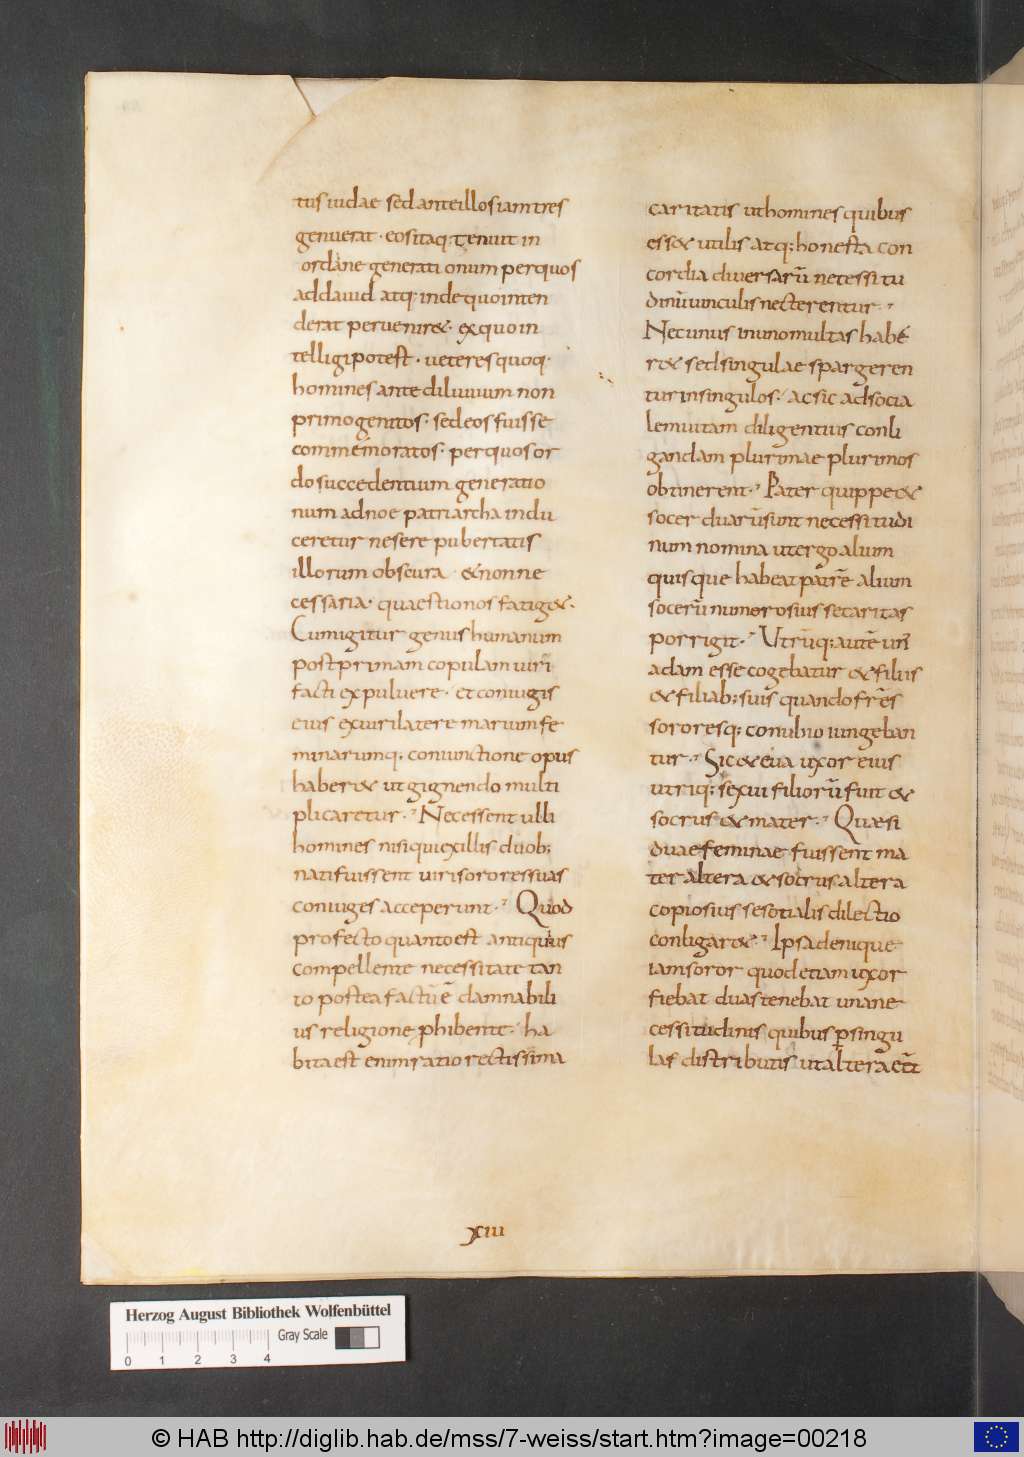 tus iudae sed ante illos iam tres
genuerat · eos itaq; tenuit in
ordane generationum per quos
ad dauid atq; inde quo inten
derat perueniret& · ex quo in
telligi potest · ueteres quoq·
homines ante diluuium non
primogenitos · sed eos fuisse
commemoratos · per quos or
do succedentium generatio
num ad noe patriarcha indu
ceretur ne sere pubertatis
illorum obscura · & non ne
cessaria · quaestio nos fatig& ·
Cum igitur genus humanum
post primam copulam uiri
facti ex puluere · et coniugis
eius ex uiri latere marium fe
minarumq; coniunctione opus
haber& ut gignendo multi
plicaretur · Nec essent ulli
homines nisi qui ex illis duob;
nati fuissent uiri sorores suas
coniuges acceperunt · Quod
profecto quanto est antiquius
compellente necessitate tan
to postea factū ē damnabili
us religione phibente · ha
bita est enim ratio rectissima
caritatis ut homines quibus
ess& utilis atq; honesta con
cordia diuersarū necessitu
dinū uinculis necterentur ·
Nec unus in uno multas habe
r& sed singulae spargeren
tur in singulos · ac sic ad socia
lem uitam diligentius conli
gandam plurimae plurimos
obtinerent · Pater quippe &
socer duarū sunt necessitudi
num nomina ut ergo alium
quisque habeat patrē alium
socerū numerosius se caritas
porrigit · Utrūq; autē unꝰ
adam esse cogebatur & filiis
& filiab; suis quando frēs
sororesq; conubio iungeban
tur · Sic & eua uxor eius
utriq; sexui filiorū fuit &
socrus & mater · Quae si
duae feminae fuissent ma
ter altera & socrus altera
copiosius se socialis dilectio
conligar& · Ipsa denique
iam soror quod etiam uxor
fiebat duas tenebat una ne
cessitudinis quibus p singu
las distributis ut altera eēt
xiii
Herzog August Bibliothek Wolfenbüttel
Gray Scale
0 1 2 3 4
© HAB http://diglib.hab.de/mss/7-weiss/start.htm?image=00218